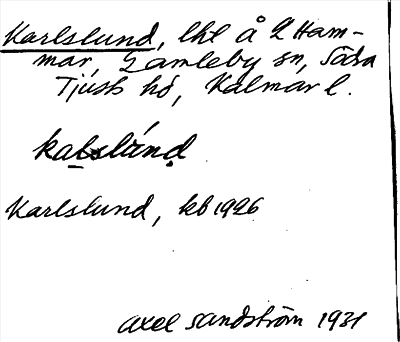 Karlslund, lht å L Ham-
mar, Gamleby sn, Södra
Tjust hd, Kalmar l.
kalslúnd
Karlslund, kb 1926
Axel Sandström 1931